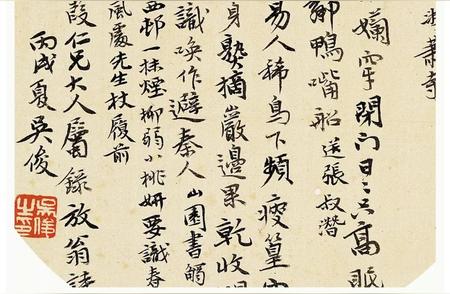 蕭寺
門日日只高眠
鴨嘴船 送張叔潛
易人稀鳥下頻瘦篁穿
身熟摘巖邊果乾收
識喚作避秦人 山園書觸
西邨一抹煙柳弱小桃妍要識春
風處先生杖履前
霞仁兄大人屬錄放翁詩
丙戌夏吳俊
吳俊之印